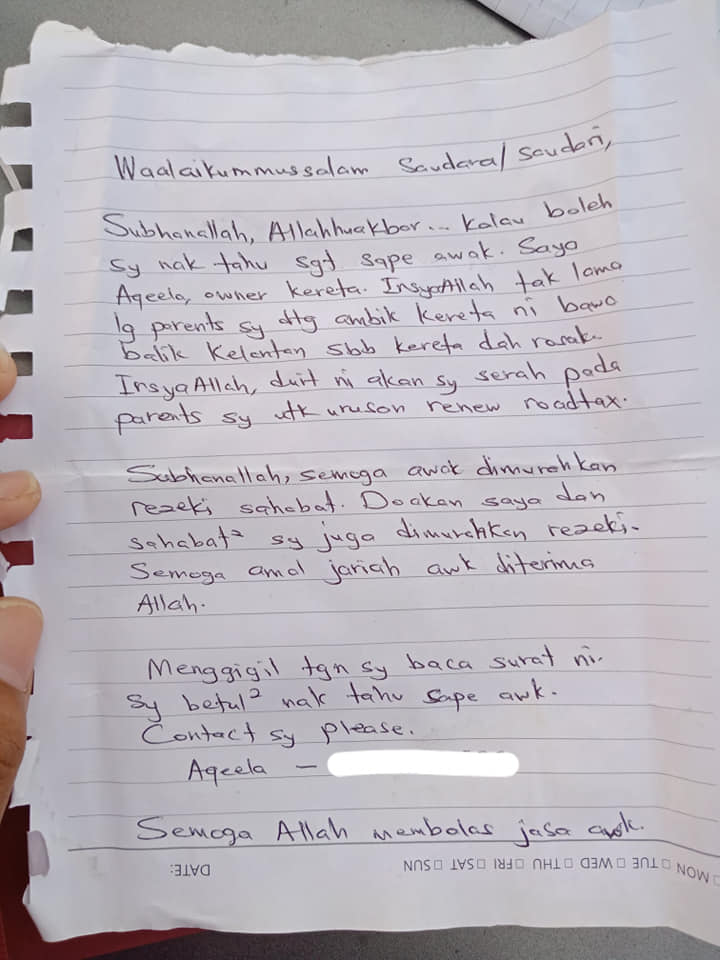 Waalaikummussalam Saudara/Saudari,
Subhanallah, Allahhuakbar... Kalau boleh
sy nak tahu sgt sape awak. Saya
Aqeela, owner kereta. InsyaAllah tak lama
lg parents sy dtg ambik kereta ni bawa
balik Kelantan sbb kereta dah rosak.
InsyaAllah, duit ni akan sy serah pada
parents sy utk uruskan renew roadtax.
Subhanallah, semoga awak dimurahkan
rezeki, sahabat. Doakan saya dan
sahabat² sy juga dimurahkan rezeki.
Semoga amal jariah awk diterima
Allah.
Menggigil tgn sy baca surat ni.
Sy betul² nak tahu sape awk.
Contact sy please.
Aqeela –
Semoga Allah membalas jasa awk.
DATE: □ MON □ TUE □ WED □ THU □ FRI □ SAT □ SUN